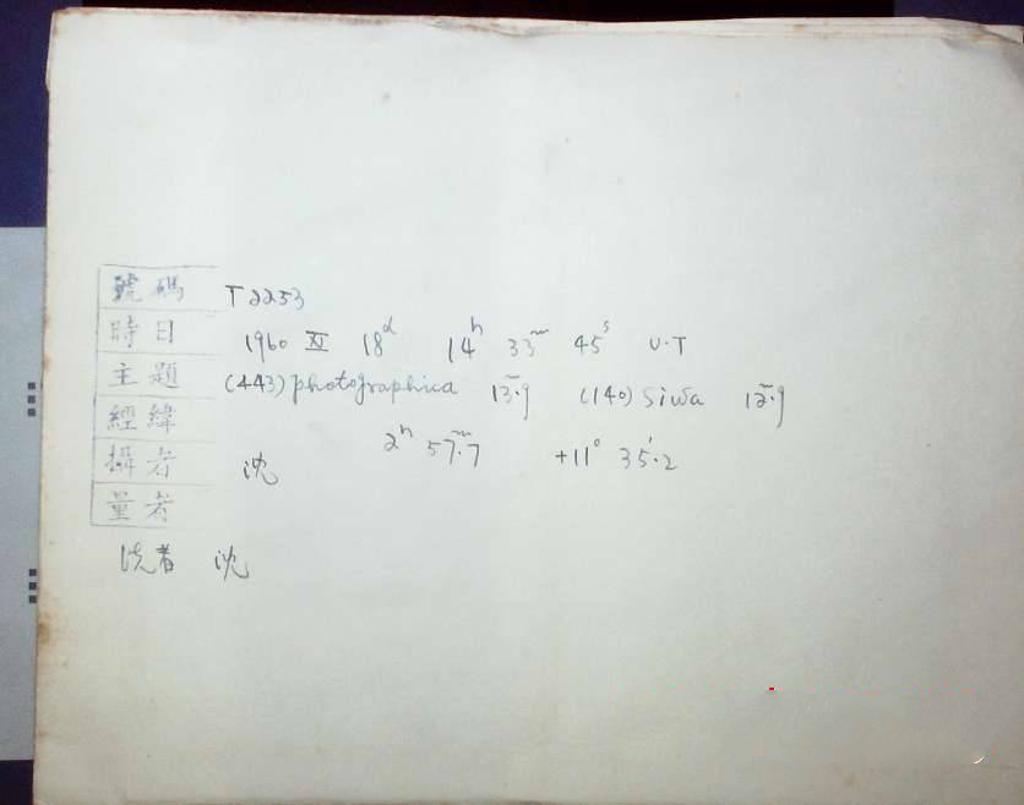 號碼 T2253
時日 1960 XI 18ᵈ 14ʰ 33ᵐ 45ˢ U.T
主題 (443) photographica 13ᵐ.9 (140) Siwa 12ᵐ.9
經緯 2ʰ 57ᵐ.7 +11° 35'.2
攝者 沈
量者
洗者 沈